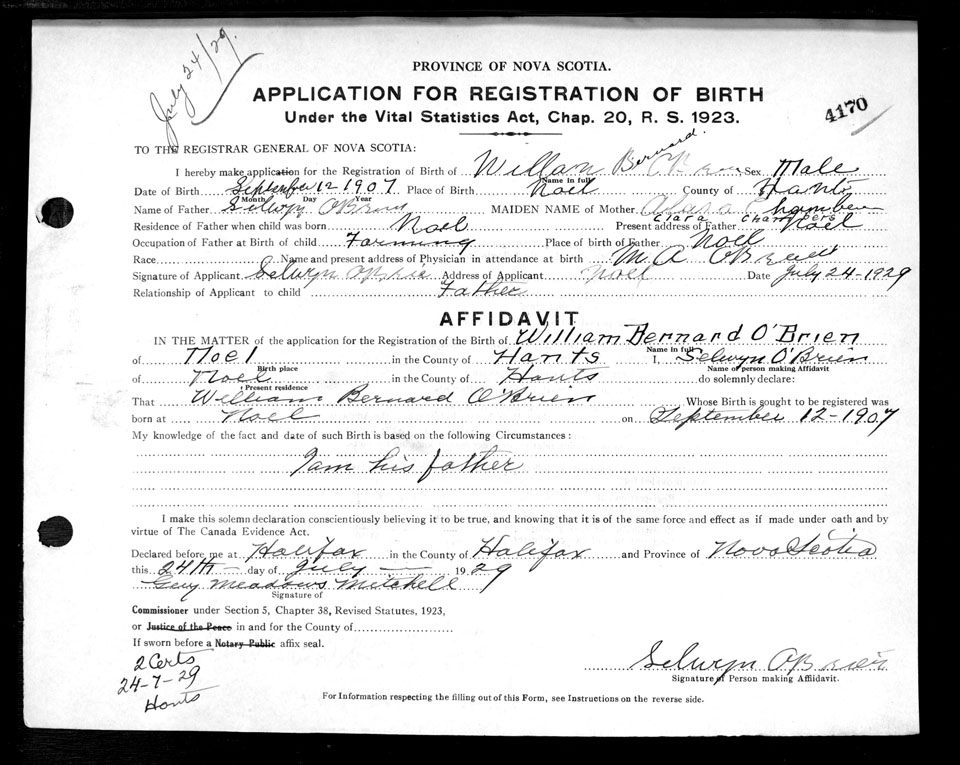 July 24/29.
PROVINCE OF NOVA SCOTIA.
APPLICATION FOR REGISTRATION OF BIRTH
4170
Under the Vital Statistics Act, Chap. 20, R. S. 1923.
TO THE REGISTRAR GENERAL OF NOVA SCOTIA:
I hereby make application for the Registration of Birth of William Bernard O'Brien Sex Male
Name in full
Date of Birth September 12 1907 Place of Birth Noel County of Hants
Month Day Year
Name of Father Selwyn OBrien MAIDEN NAME of Mother Clara Chambers
Clara Chambers
Residence of Father when child was born Noel Present address of Father Noel
Occupation of Father at Birth of child Farming Place of birth of Father Noel
Race Name and present address of Physician in attendance at birth M. A. OBrien
Signature of Applicant Selwyn OBrien Address of Applicant Noel Date July 24-1929
Relationship of Applicant to child Father
AFFIDAVIT
IN THE MATTER of the application for the Registration of the Birth of William Bernard O'Brien
Name in full
of Noel in the County of Hants I, Selwyn O'Brien
Birth place Name of person making Affidavit
of Noel in the County of Hants do solemnly declare:
Present residence
That William Bernard O'Brien Whose Birth is sought to be registered was
born at Noel on September 12-1907
My knowledge of the fact and date of such Birth is based on the following Circumstances:
I am his father
I make this solemn declaration conscientiously believing it to be true, and knowing that it is of the same force and effect as if made under oath and by
virtue of The Canada Evidence Act.
Declared before me at Halifax in the County of Halifax and Province of Nova Scotia
this 24th day of July 1929
Guy Meadows Mitchell
Signature of
Commissioner under Section 5, Chapter 38, Revised Statutes, 1923,
or Justice of the Peace in and for the County of
If sworn before a Notary Public affix seal.
2 Certs
24-7-29
Hants
Selwyn OBrien
Signature of Person making Affidavit.
For Information respecting the filling out of this Form, see Instructions on the reverse side.